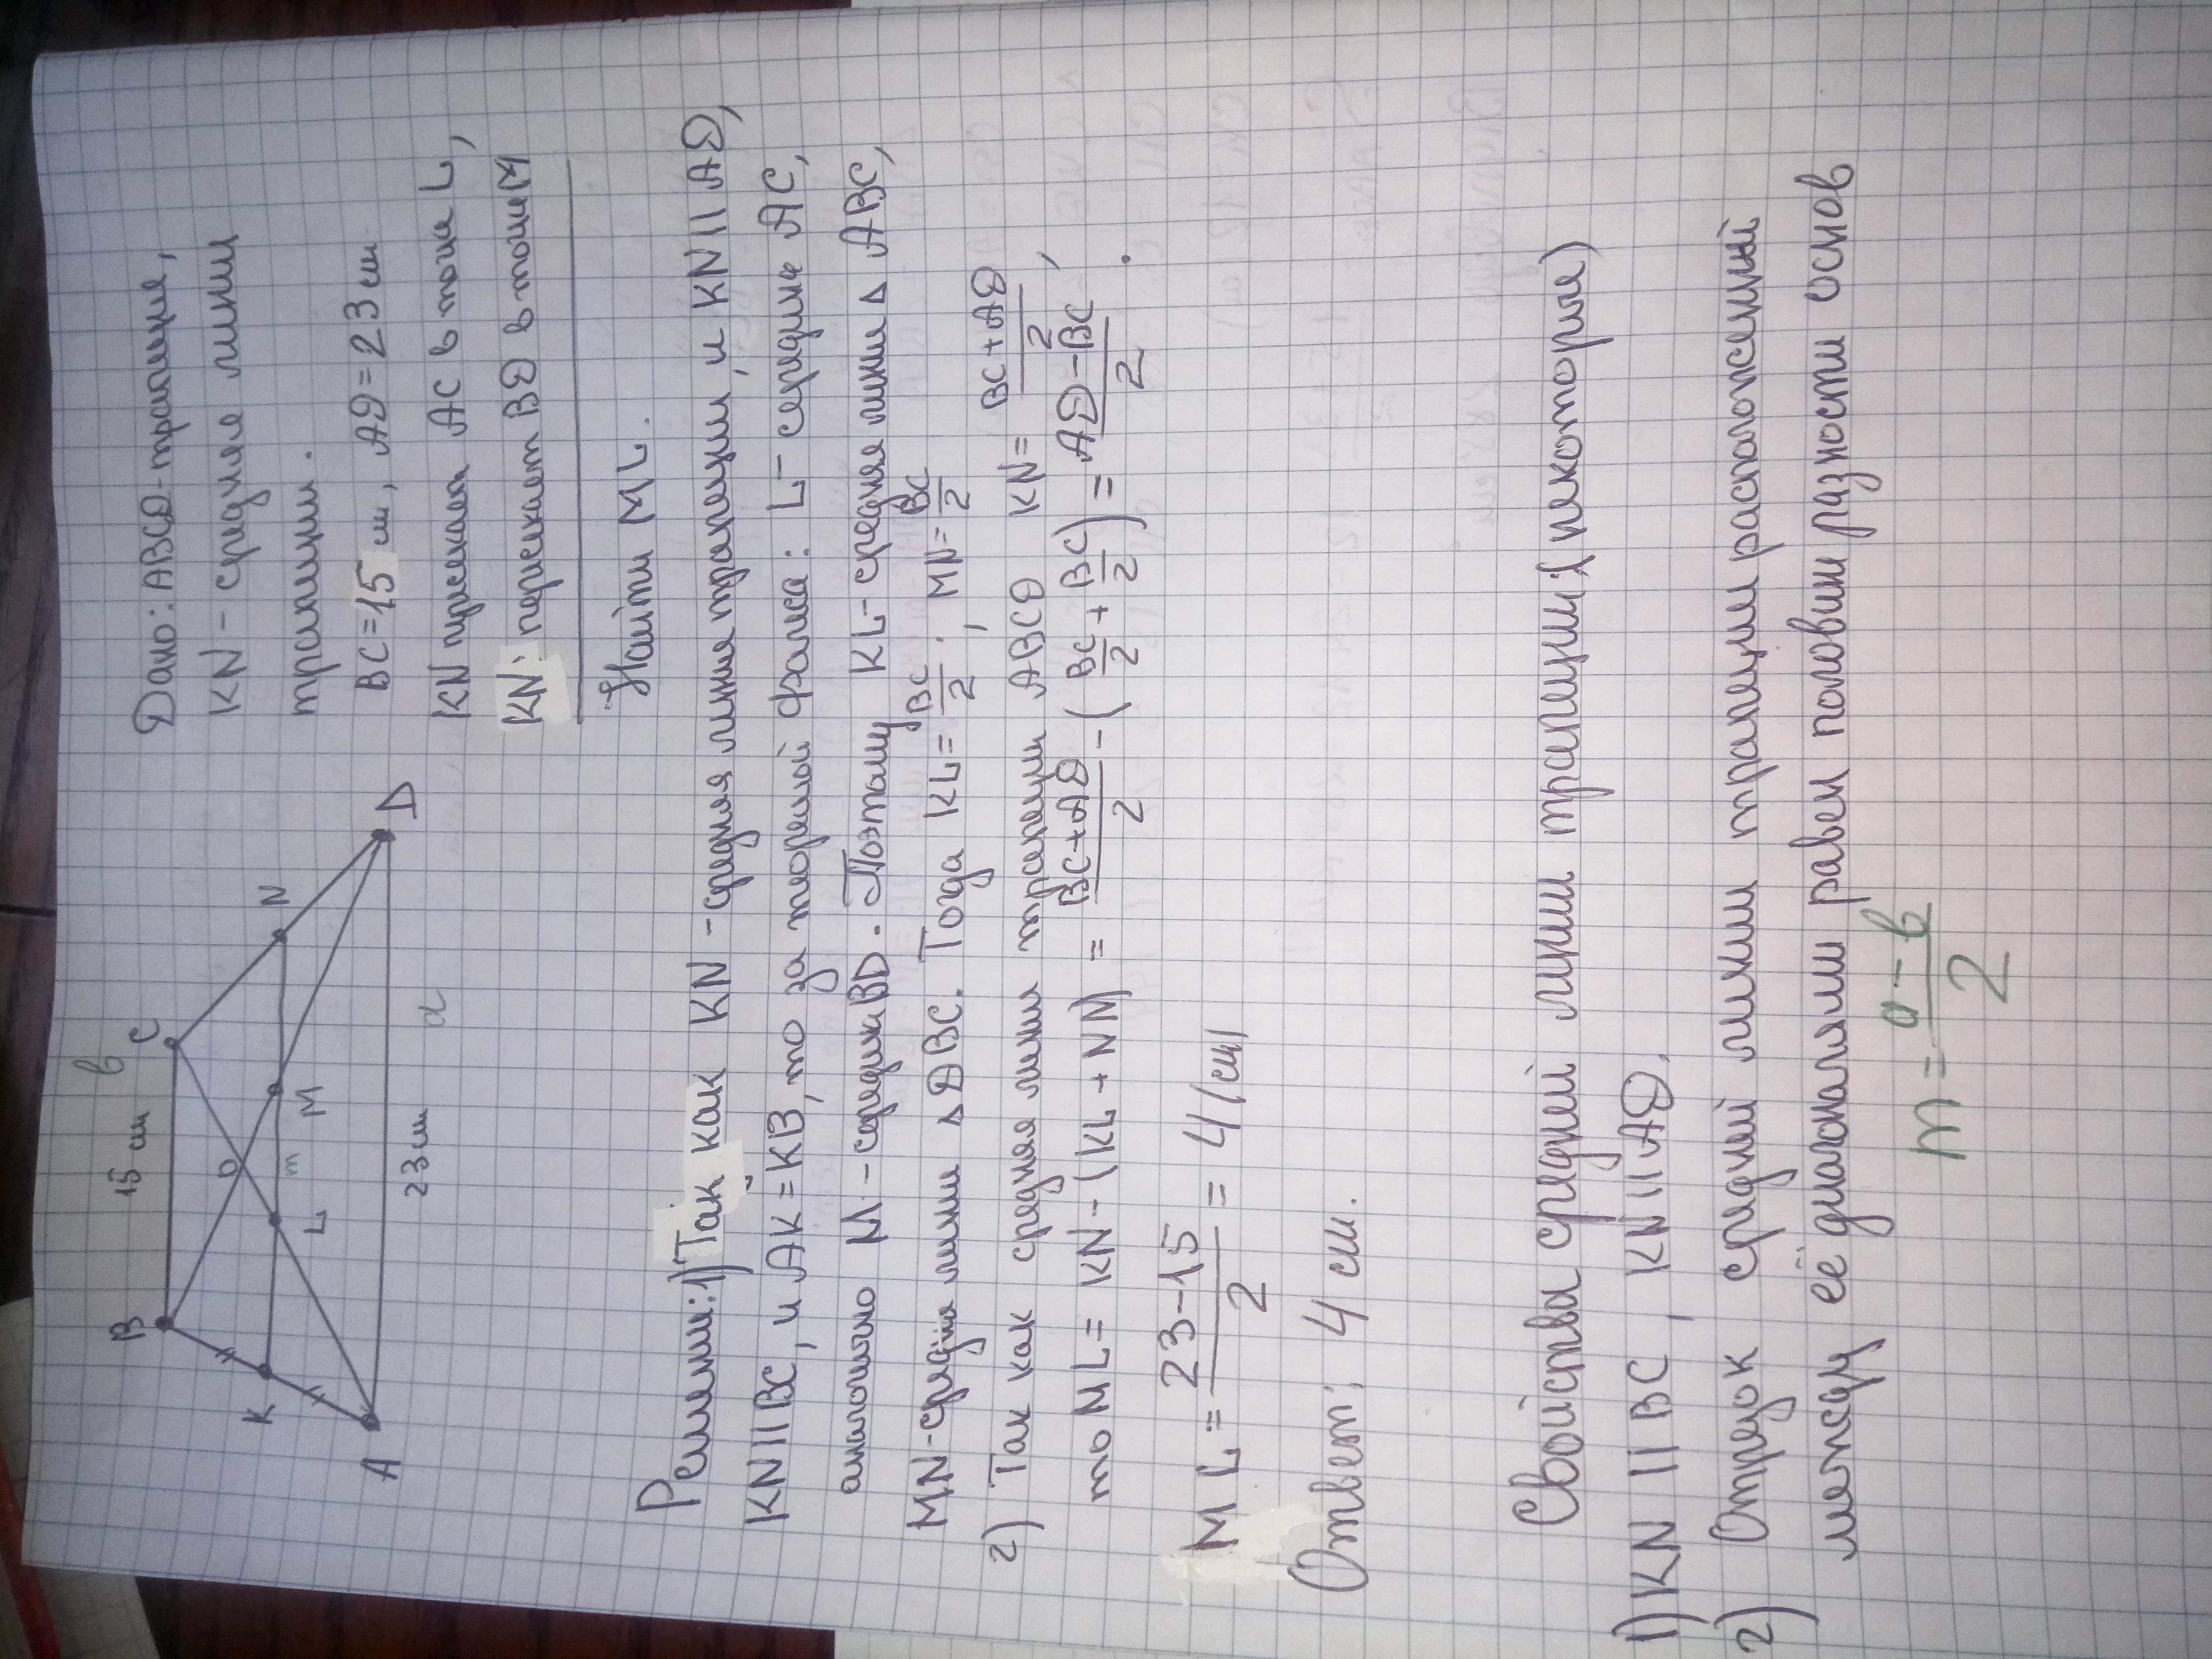 B 15 см C в
K L m M N O
A 23 см a D
Дано: ABCD-трапеция,
KN - средняя линия
трапеции.
BC=15 см, AD=23 см
KN пресекает AC в точке L,
KN пересекает BD в точке M
Найти ML.
Решение: 1) Так как KN - средняя линия трапеции, и KN||AD,
KN||BC, и AK=KB, то за теоремой Фалеса: L - середина AC,
аналогично M - середина BD. Поэтому KL - средняя линия △ ABC,
MN - средняя линия △ DBC. Тогда KL = BC/2, MN = BC/2
2) Так как средняя линия трапеции ABCD KN = BC+AD/2,
то ML = KN - (KL + NM) = BC+AD/2 - (BC/2 + BC/2) = AD-BC/2.
ML = 23-15/2 = 4 (см)
Ответ: 4 см.
Свойства средней линии трапеции: (некоторые)
1) KN || BC, KN || AD.
2) Отрезок средней линии трапеции расположенный
между её диагоналями равен половине разности основ
m = a - b/2